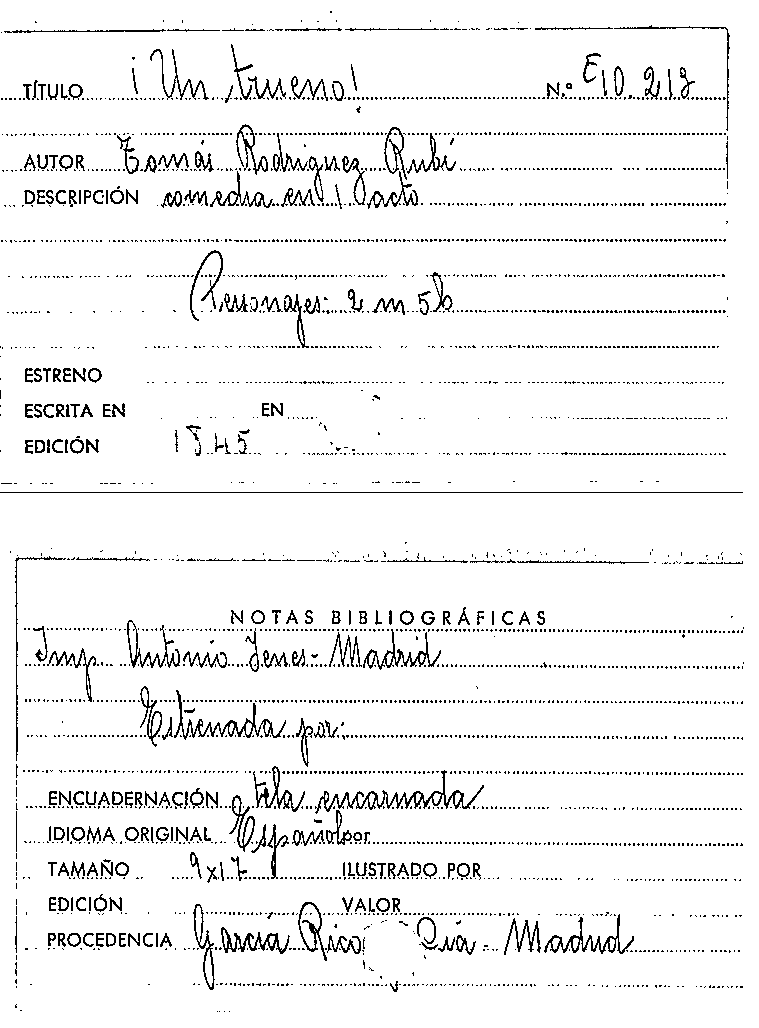 TÍTULO ¡Un trueno! N.º E10.218
AUTOR Tomás Rodriguez Rubí
DESCRIPCIÓN comedia en 1 acto
Personajes: 2 m 5 h
ESTRENO
ESCRITA EN EN
EDICIÓN 1845
NOTAS BIBLIOGRÁFICAS
Imp Antonio Yenes - Madrid
Estrenada por:
ENCUADERNACIÓN tela encarnada
IDIOMA ORIGINAL Español por
TAMAÑO 9x17 ILUSTRADO POR
EDICIÓN VALOR
PROCEDENCIA García Rico Cia - Madrid